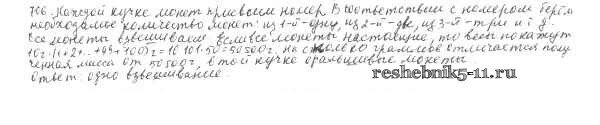 706. Каждой кучке монет присвоим номер. В соответствии с номером берём
необходимое количество монет: из 1-й - одну, из 2-й - две, из 3-й - три и т д.
Все монеты взвешиваем. Если все монеты настоящие, то весы покажут
10г·(1+2+...+99+100)= 10·101·50=50500г. На сколько граммов отличается полу
ченная масса от 50500г, в той кучке фальшивые монеты.
Ответ: одно взвешивание.
reshebnik5-11.ru